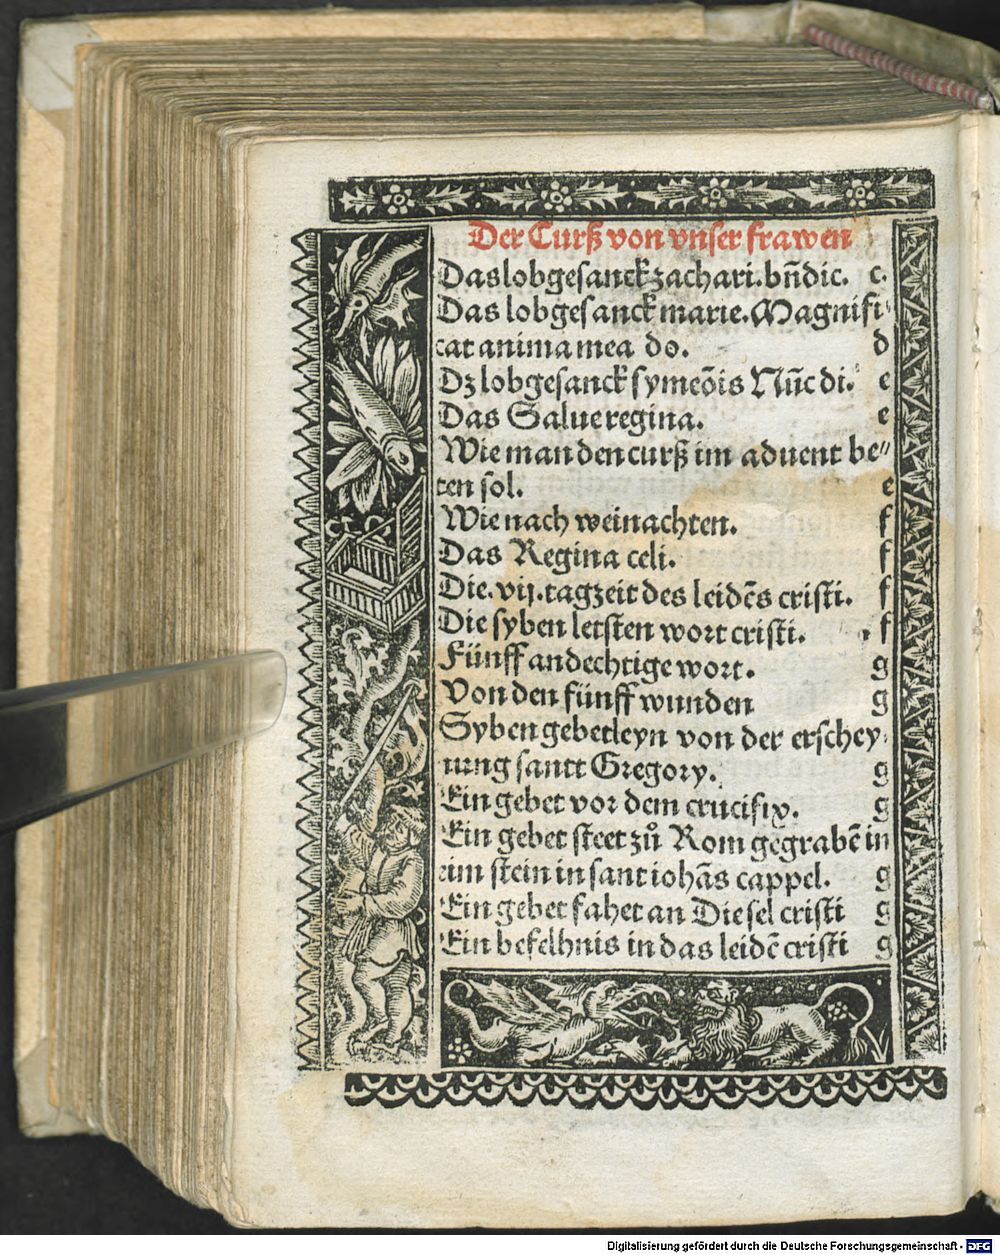 Der Curß von vnser frawen
Das lobgesanck zachari. bn̄dic. c.
Das lobgesanck marie. Magnifi
cat anima mea do. d
Dz lobgesanck symeōis Nūc di. e
Das Salue regina. e
Wie man den curß im aduent be⸗
ten sol. e
Wie nach weinachten. f
Das Regina celi. f
Die. vij. tagzeit des leidēs cristi. f
Die syben letsten wort cristi. f
Fünff andechtige wort. g
Von den fünff wunden g
Syben gebetleyn von der erschey⸗
nung sant Gregory. g
Ein gebet vor dem crucifix. g
Ein gebet steet zů Rom gegrabē in
eim stein in sant iohās cappel. g
Ein gebet fahet an Die sel cristi g
Ein befelhnis in das leidē cristi g
Digitalisierung gefördert durch die Deutsche Forschungsgemeinschaft - DFG